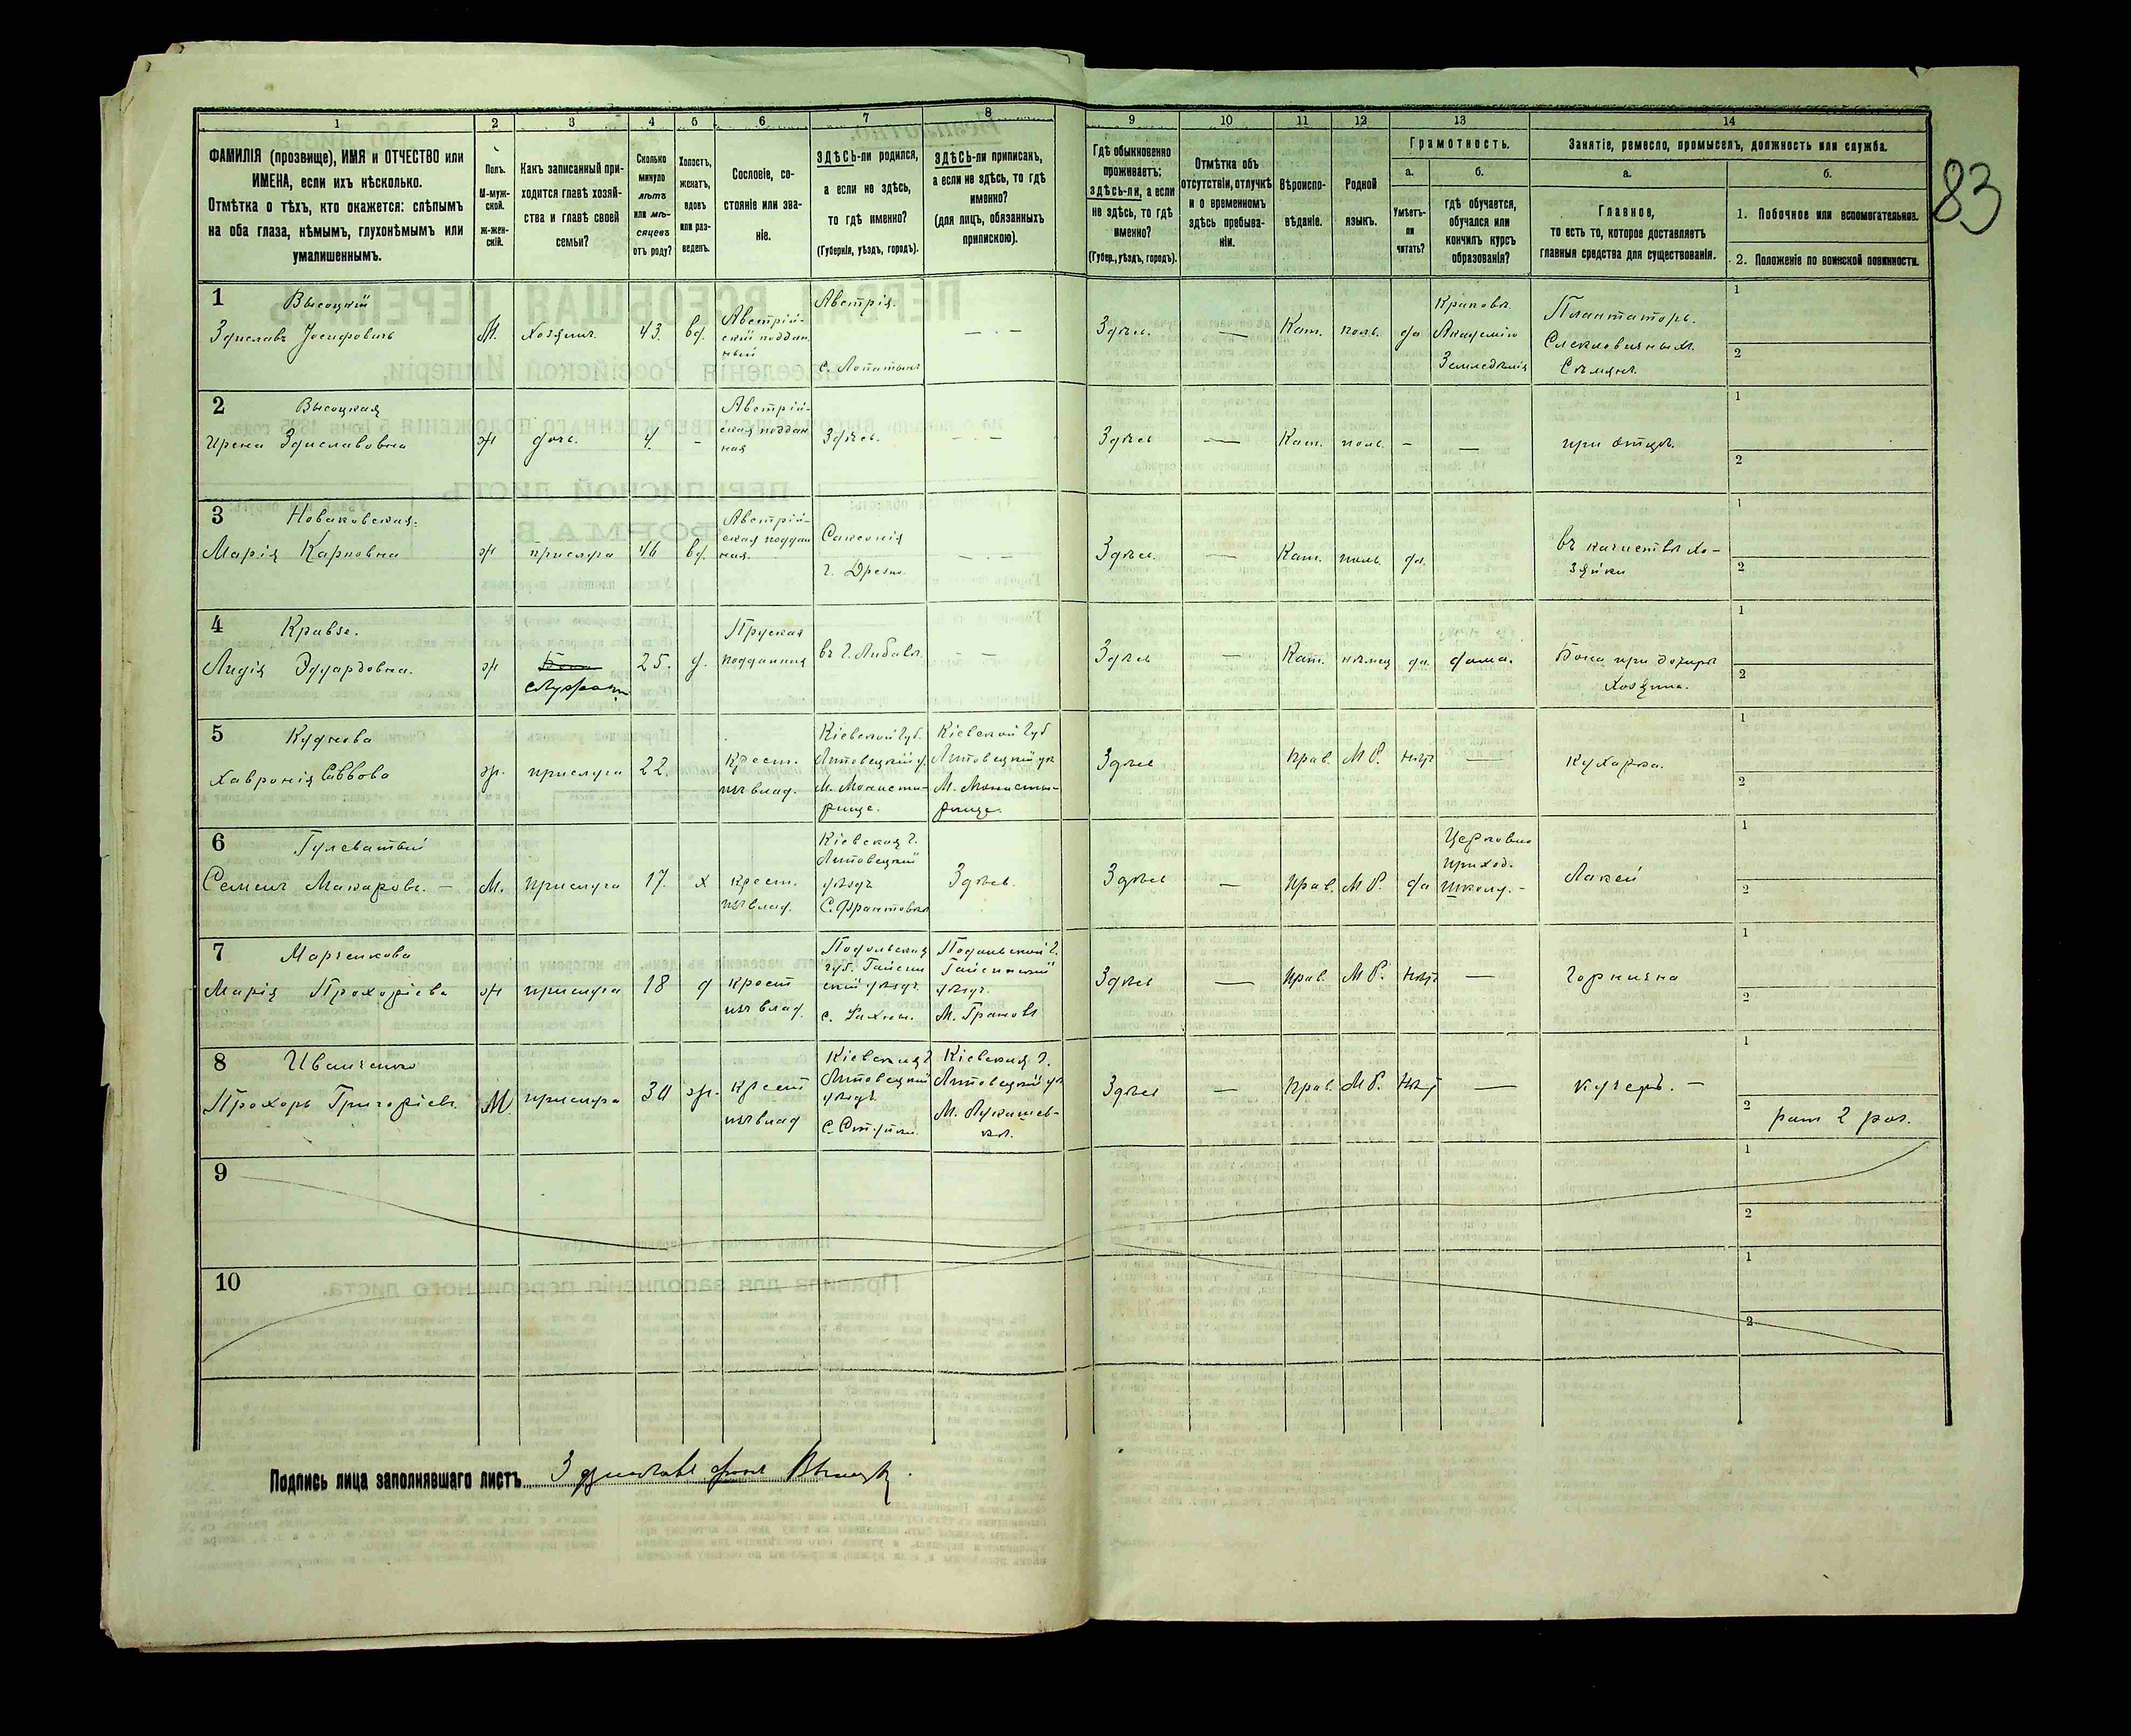 1
2
3
4
5
6
7
8
ФАМИЛІЯ (прозвище), ИМЯ и ОТЧЕСТВО или
ИМЕНА, если ихъ нѣсколько.
Отмѣтка о тѣхъ, кто окажется: слѣпымъ
на оба глаза, нѣмымъ, глухонѣмымъ или
умалишеннымъ.
Полъ.
М-муж-
ской.
Ж-жен-
скій.
Какъ записанный при-
ходится главѣ хозяй-
ства и главѣ своей
семьи?
Сколько
минуло
лѣтъ
или мѣ-
сяцевъ
отъ роду?
Холостъ,
женатъ,
вдовъ
или раз-
веденъ.
Сословіе, со-
стояніе или зва-
ніе.
ЗДѢСЬ-ли родился,
а если не здѣсь,
то гдѣ именно?
(Губернія, уѣздъ, городъ).
ЗДѢСЬ-ли приписанъ,
а если не здѣсь, то гдѣ
именно?
(для лицъ, обязанныхъ
припискою).
9
10
11
12
13
14
Гдѣ обыкновенно
проживаетъ:
здѣсь-ли, а если
не здѣсь, то гдѣ
именно?
(Губер., уѣздъ, городъ).
Отмѣтка объ
отсутствіи, отлучкѣ
и о временномъ
здѣсь пребыва-
ніи.
Вѣроиспо-
вѣданіе.
Родной
языкъ.
Грамотность.
а.
Умѣетъ-
ли
читать?
б.
гдѣ обучается,
обучался или
кончилъ курсъ
образованія?
Занятіе, ремесло, промыселъ, должность или служба.
а.
Главное,
то есть то, которое доставляетъ
главныя средства для существованія.
б.
1. Побочное или вспомогательное.
2. Положеніе по воинской повинности.
83
1
Высоцкій
Здиславъ Іосифовичъ
М.
хозяинъ
43.
вд.
Австрій-
скій поддан-
ный
Австрія.
Здѣсь.
—
Кат.
поль.
да
Краковъ.
Академію
Земледѣлія
Плантаторъ.
Свекловичныхъ
Сѣмянъ.
1
2
2
Высоцкая
Ирена Здиславовна
ж
дочь.
4.
-
Австрій-
ская поддан-
ная
Здѣсь.
Здѣсь
—
Кат.
поль.
-
—
при отцѣ.
1
2
3
Новаковская.
Марія Карповна
ж
прислуга
46
вд.
Австрій-
ская поддан
ная.
Саксонія
г. Дрезн.
Здѣсь.
—
Кат.
поль.
да.
въ качествѣ хо-
зяйки
1
2
4
Кравзе.
Лидія Эдуардовна.
ж
25.
д.
Пруская
подданная
въ г. Либавѣ.
Здѣсь
—
Кат.
нѣмец
да
дома.
Бона при дочери
хозяина.
1
2
5
Хавронія Саввова
ж.
прислуга
22.
крест.
изъ влад.
Кіевской Губ.
Липовецкій у.
М. Монасты-
рище.
Кіевской Губ
Липовецкій уѣ
М. Монасты-
рище.
Здѣсь
прав.
М Р.
нѣтъ
—
кухарка.
1
2
6
Гулеватый
Семенъ Макаровъ. -
М.
прислуга
17.
х
крест.
изъ влад.
Кіевская г.
Липовецкій
уѣздъ
С. Франтовка
Здѣсь.
Здѣсь
—
прав.
М Р.
да
Церковно
приход.
школу. -
Лакей
1
2
7
Марченкова
Марія Прохоріева
ж
прислуга
18
д
крест
изъ влад.
Подольская
губ. Гайсин
скій уѣздъ.
Подольской г.
Гайсинскій
уѣздъ.
М. Грановъ
Здѣсь
—
прав.
М Р.
нѣтъ
—
горнична
1
2
8
Иванченко
Прохоръ Григоріевъ.
М
прислуга
30
ж.
крест
изъ влад
Кіевская г
Липовецкій
уѣздъ
Кіевская г.
Липовецкій уѣ
М. Лукашев-
ка.
Здѣсь
—
прав.
М Р.
нѣтъ
—
кучеръ. -
1
2
рат 2 раз.
9
1
2
10
1
2
Подпись лица заполнявшаго листъ